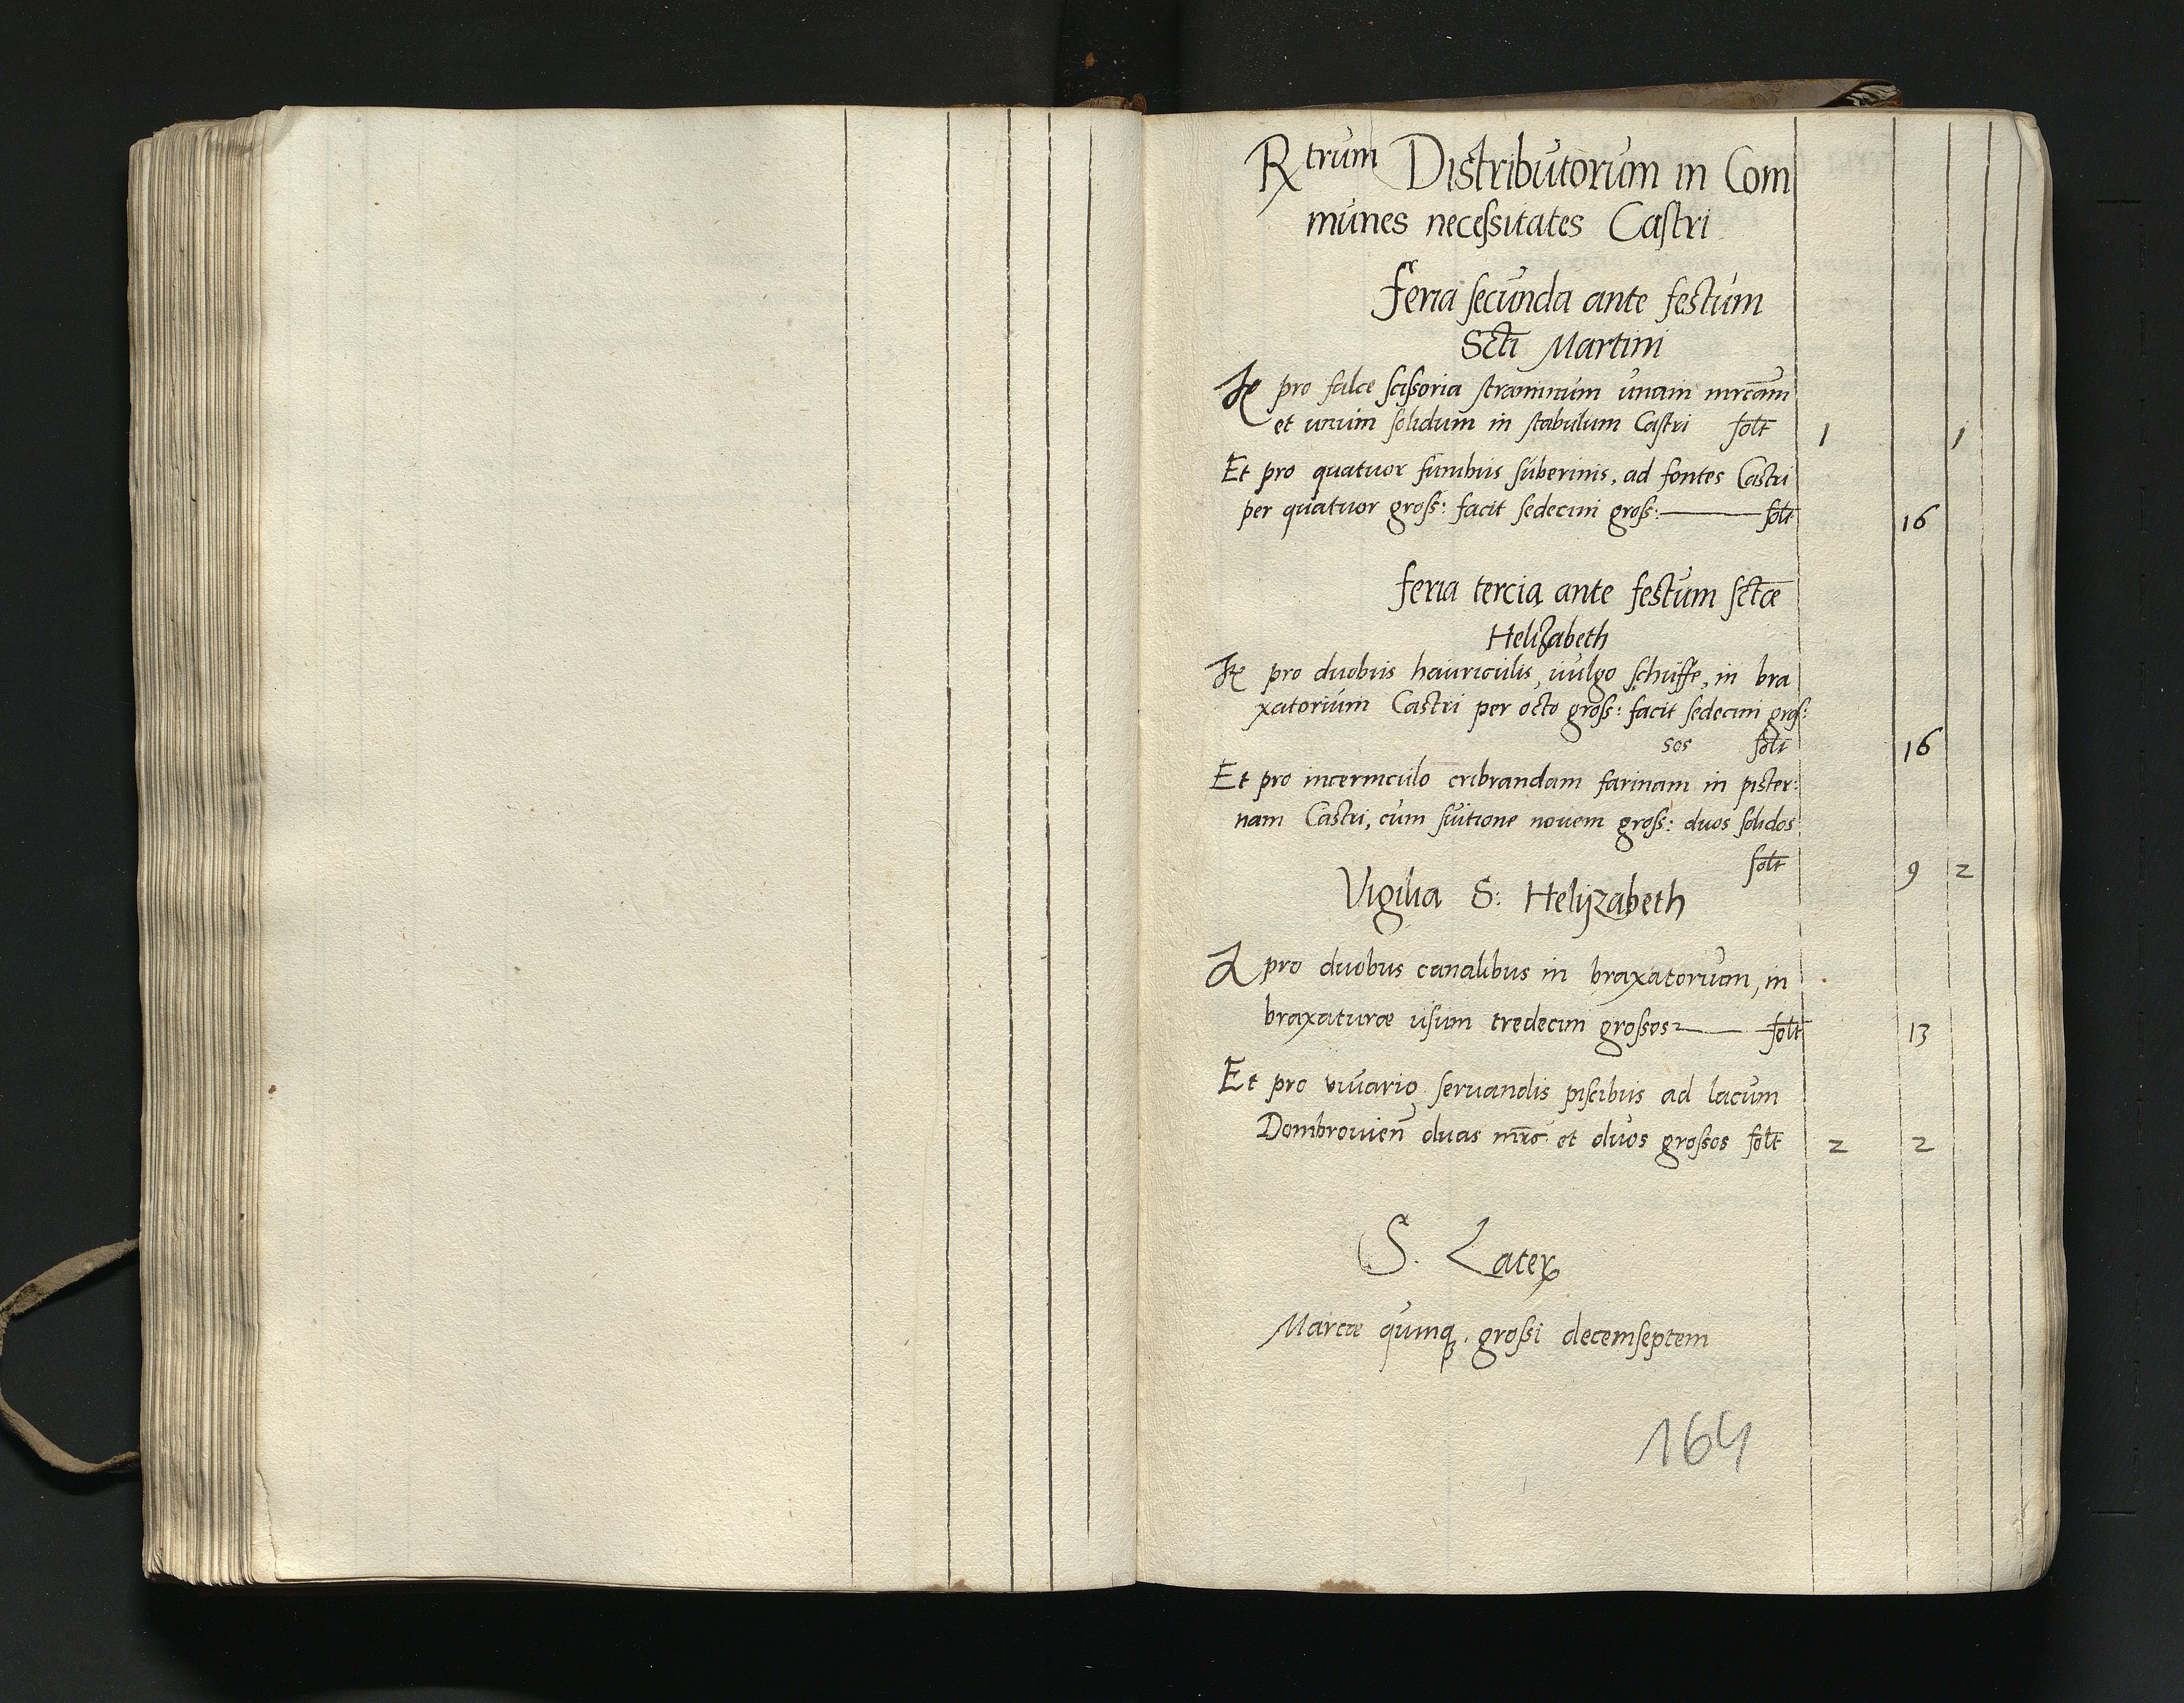 Rtrum Distributorum in Com
munes necessitates Castri
Feria secunda ante festum
Scti Martini
pro falce scissoria straminum unam mrcam
et unum solidum in stabulum Castri solt 1 1
Et pro quatuor funibus suberinis, ad fontes Castri
per quatuor gross: facit sedecim gross: solt 16
feria tercia ante festum sctæ
Helizabeth
pro duobus hauriculis, vulgo schuffe, in bra
xatorium Castri per octo gross: facit sedecim gros:
sos solt 16
Et pro incerniculo cribrandam farinam in pister:
nam Castri, cum suitione novem gross: duos solidos
solt 9 2
Vigilia S: Helyzabeth
pro duobus canalibus in braxatorium, in
braxaturæ usum tredecim grossos solt 13
Et pro vivario servandis piscibus ad lacum
Dombrovien duas mrc et duos grossos solt 2 2
S. Later
Marcæ quinq. grossi decemseptem
164